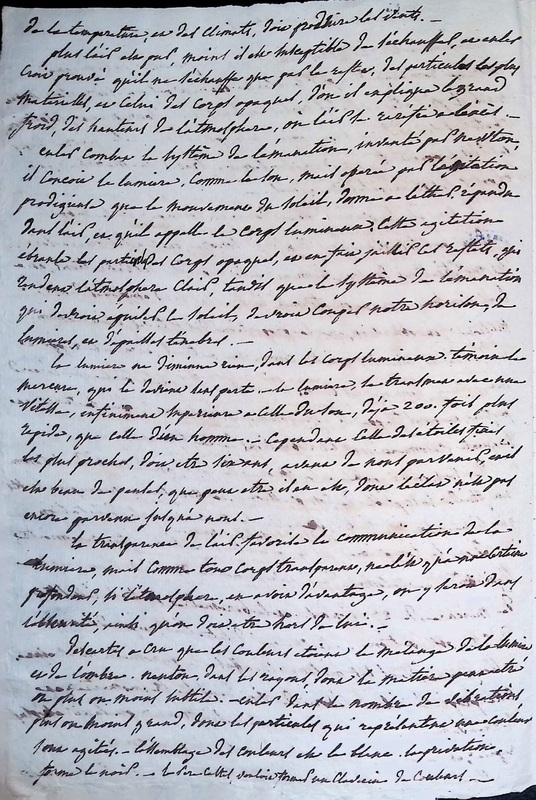 de la temperature, en des climats, doit produire les vents. —
plus l'air est pur, moins il est susceptible de s'échauffer, et euler
croit prouvé qu'il ne s'échauffe que par le reflet, des particules les plus
materielles, et celui des corps opaques, d'où il explique le grand
froid, des hauteurs de l'atmosphere, où l'air se rarefie
euler combat le systême de l'émanation, inventé par newton,
il concoit la lumiere, comme le son, mais operée par l'agitation
prodigieuse que le mouvement du soleil, donne a l'ether, repandu
dans l'air, et qu'il appelle le corps lumineux. Cette agitation
ébranle les parties des corps opaques, et en fait jaillir ces reflets, qui
rendent l'atmosphere clair, tandis que le systême de l'émanation
qui devroit épuiser le soleil, devroit couper notre horison, de
lumieres, et d'épaisses tenebres. —
la lumiere ne diminue rien, dans les corps lumineux. temoin le
mercure, qui le devient sans perte. — la lumiere, se transmet avec une
vitesse, infiniment superieure a celle du son, déja 200. fois plus
rapide, que celle d'un homme. — Cependant celle des étoiles fixes
les plus proches, doit etre six ans, avant de nous parvenir, et il
est beau de penser, que peut etre il en est, dont l'éclat n'est pas
encore parvenu jusqu'a nous. —
la transparence de l'air favorise la communication de la
lumiere, mais comme tout corps transparent, ne l'est qu'a une certaine
profondeur, si l'atmosphere, en avoit d'avantage, on y seroit dans
l'obscurité, quon doit etre hors de lui. —
descartes a cru que les couleurs etoient le mélange de la lumiere
et de l'ombre. neuton, dans les rayons, dont la matiere peut etre
ou plus ou moins subtile. — euler dans le nombre de vibrations
plus ou moins grand, dont les particules qui représentent une couleur
sont agitées. — l'assemblage des couleurs est le blanc. la privation,
forme le noir. — le pere Castel, vouloit former un clavecin de couleurs. —